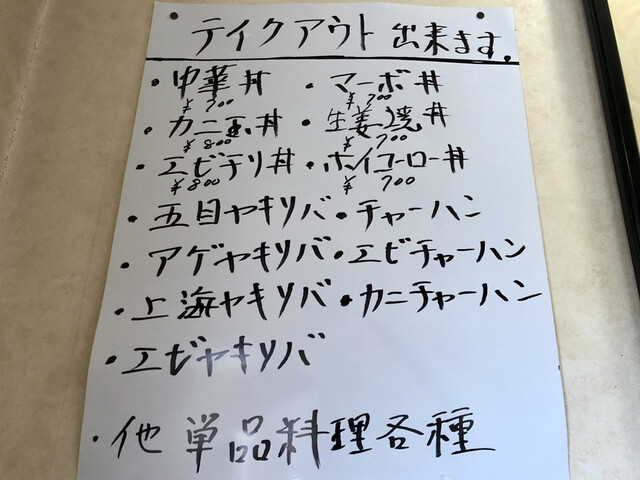 テイクアウト出来ます。
・中華丼 ・マーボ丼
¥700 ¥700
・カニ玉丼 ・生姜焼丼
¥800 ¥700
・エビチリ丼 ・ホイコーロー丼
¥800 ¥700
・五目ヤキソバ ・チャーハン
・アゲヤキソバ ・エビチャーハン
・上海ヤキソバ ・カニチャーハン
・エビヤキソバ
・他 単品料理各種